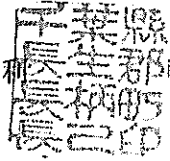 千葉縣
長生郡
長柄町
長之印